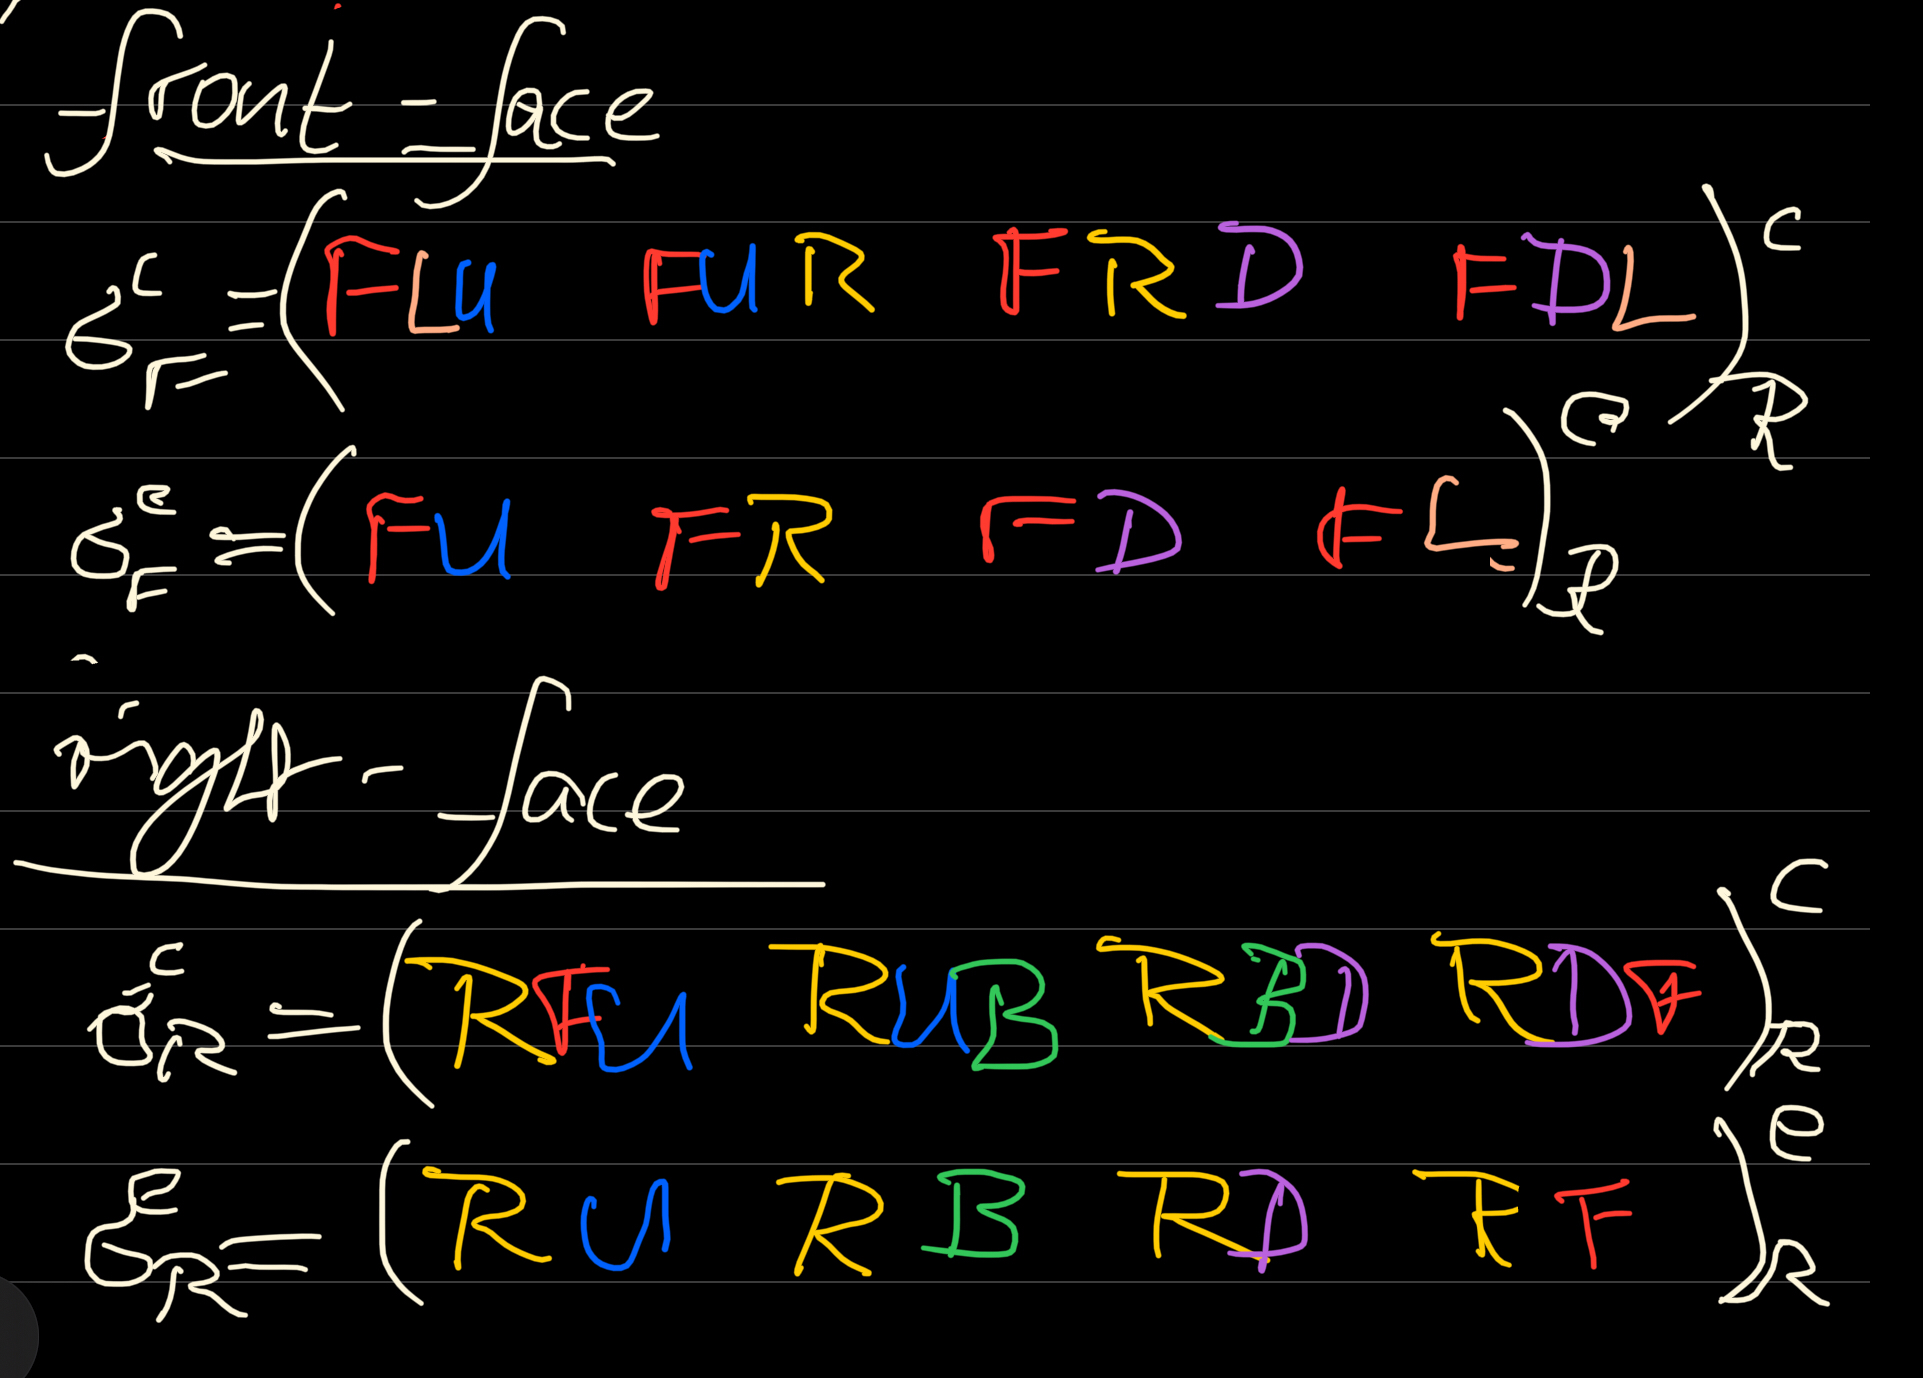 front-face
σ^C_F = (FLU FUR FRD FDL)^C_R
σ^e_F = (FU FR FD FL)^e_R
right-face
σ^C_R = (RFU RUB RBD RDF)^C_R
σ^e_R = (RU RB RD RF)^e_R